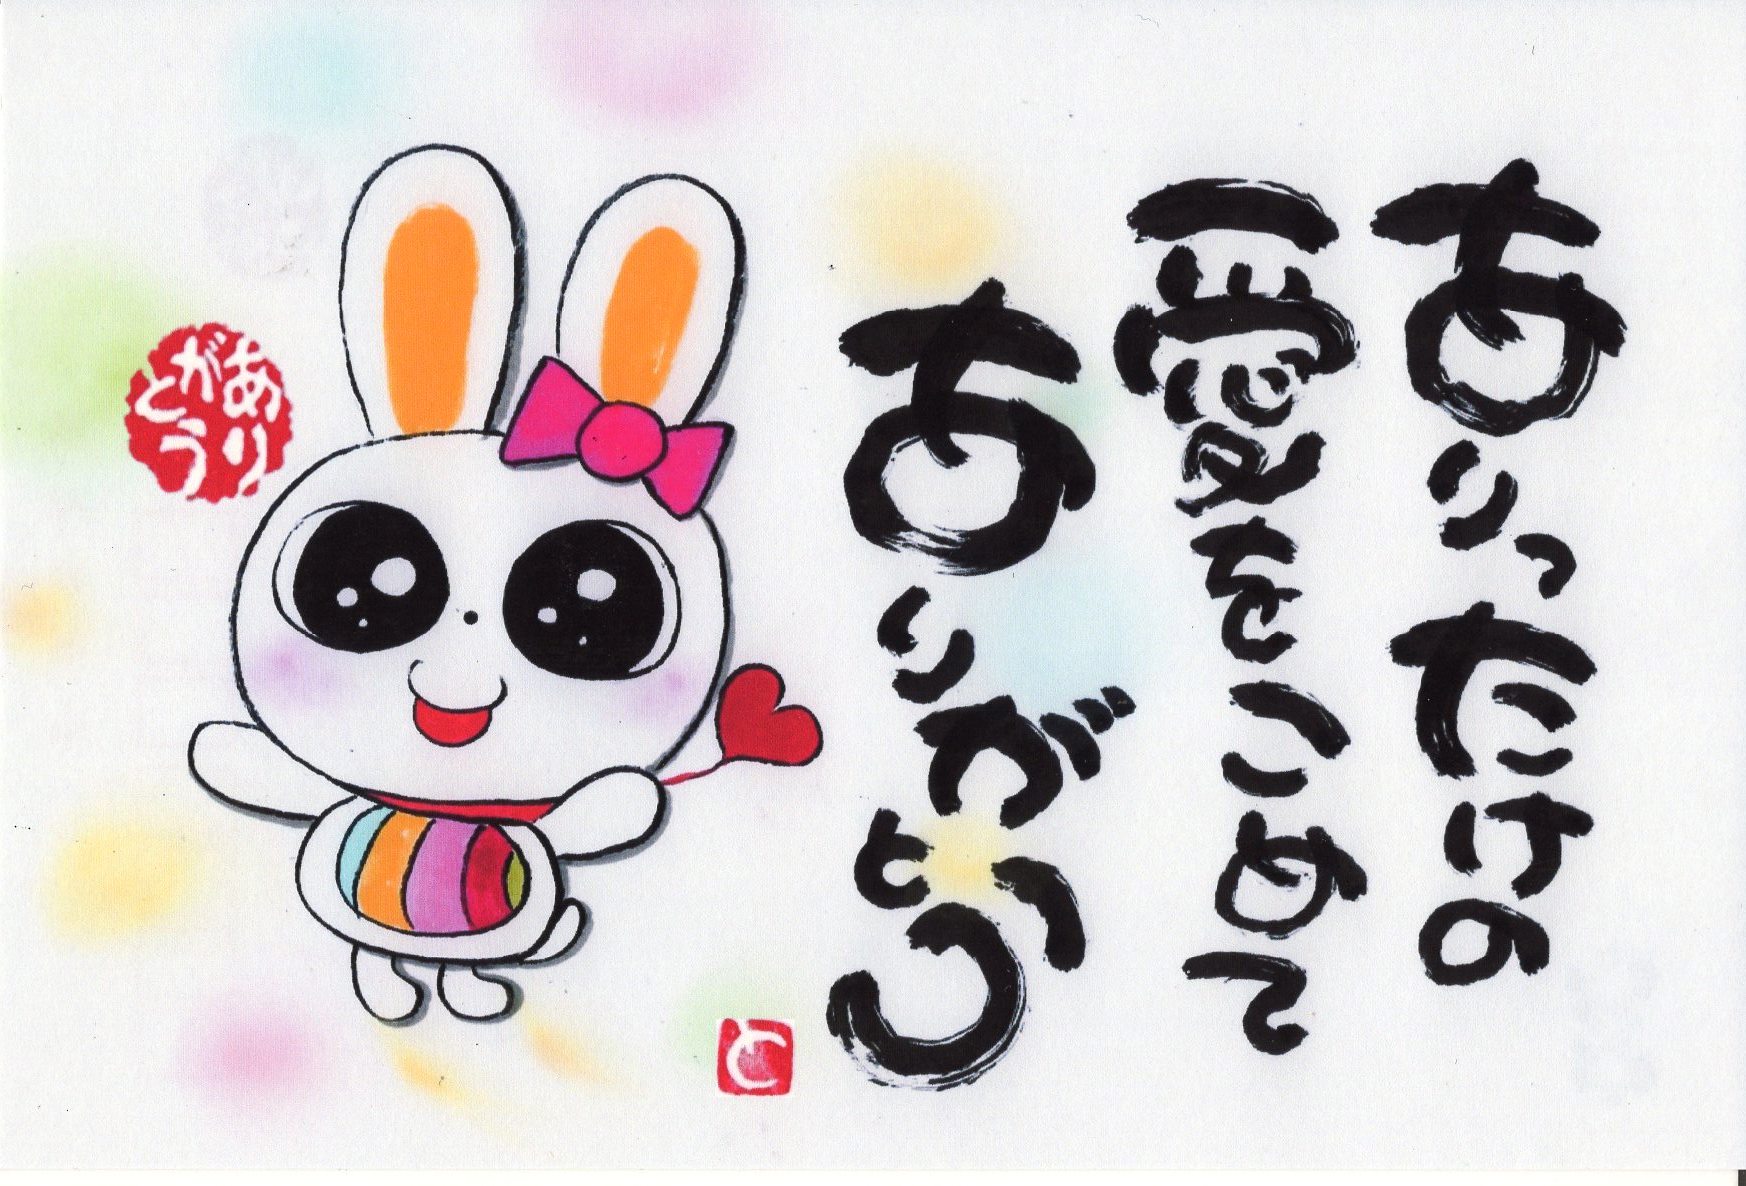 ありったけの
愛をこめて
ありがとう
ありがとう
と